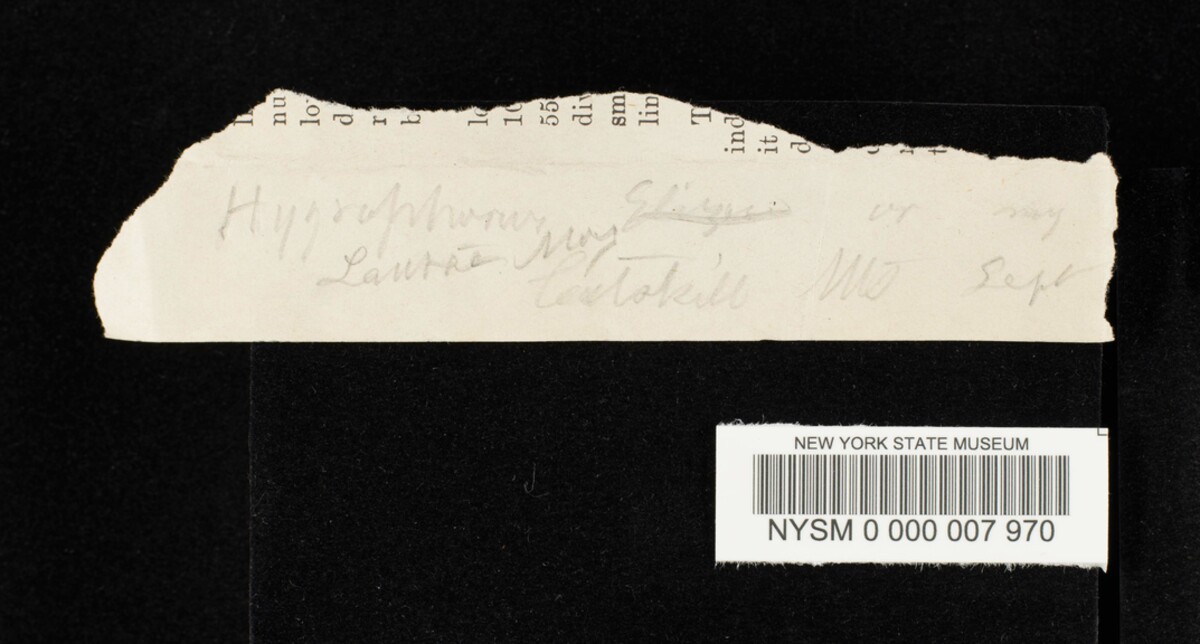 nu
lo
d
r
b
le
10
55
div
sm
lin
T
ind
it
d
Hygrophorus or my
Laurae
Catskill Mts Sept
NEW YORK STATE MUSEUM
NYSM 0 000 007 970